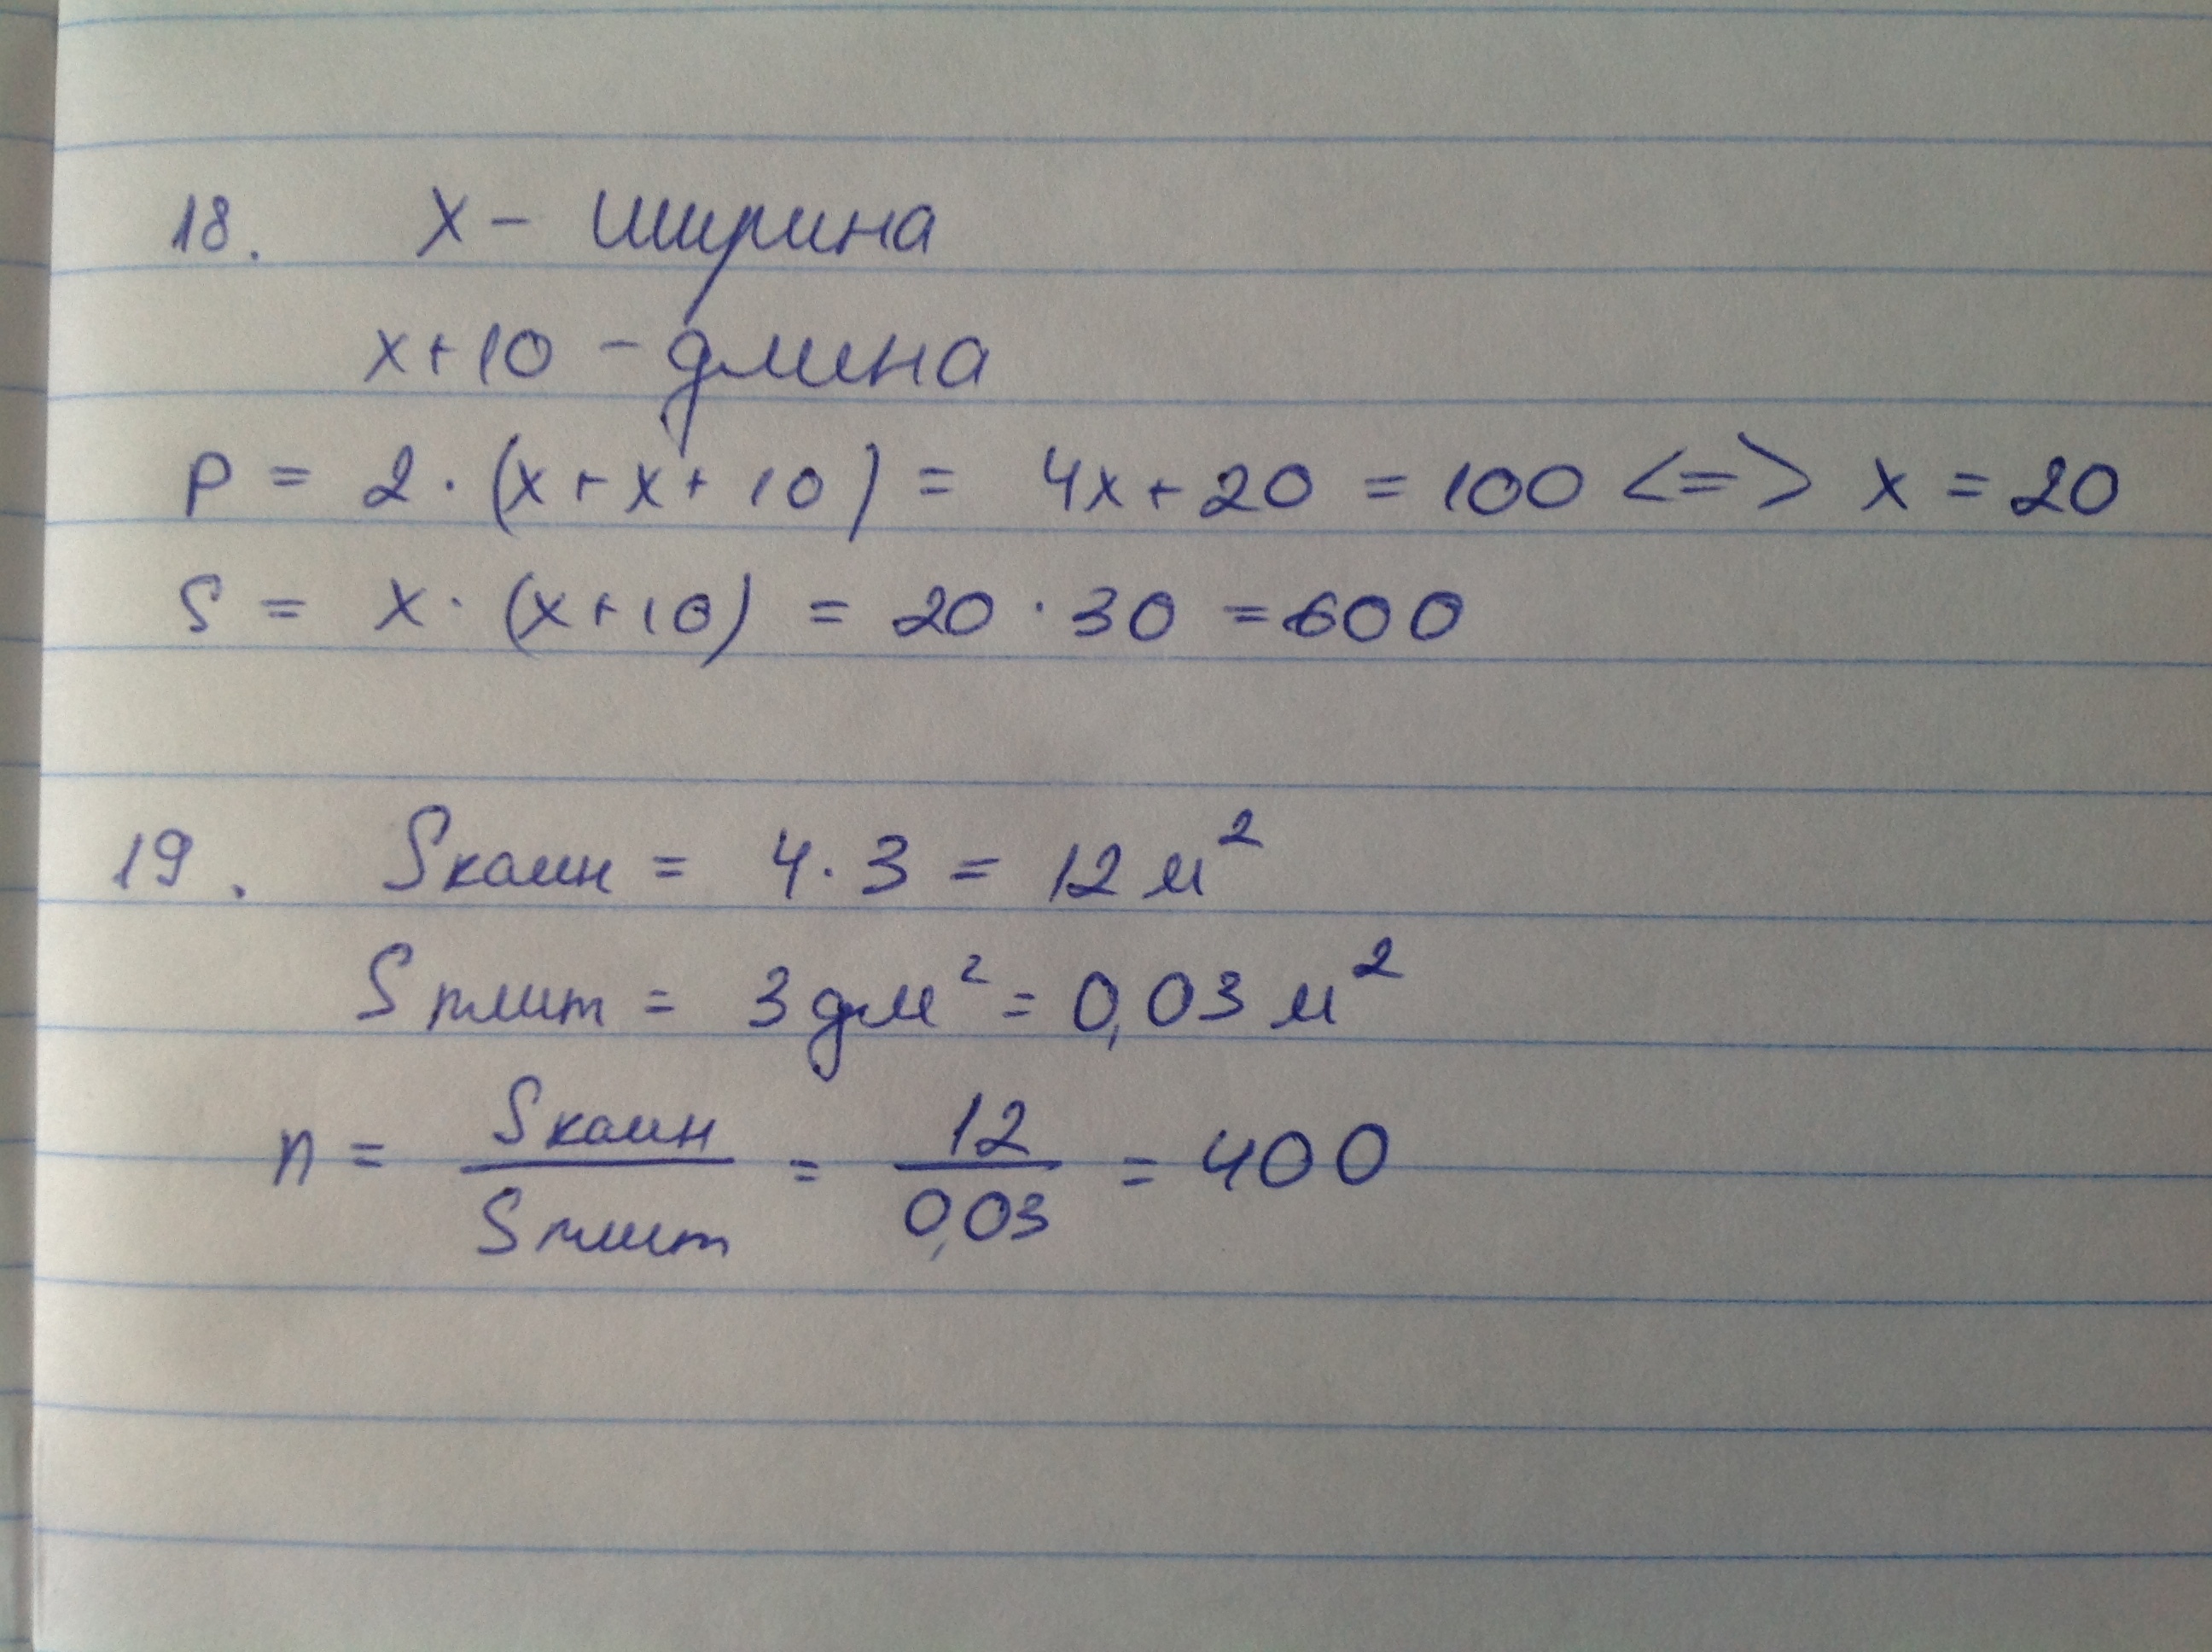 18. x - ширина
x+10 - длина
P = 2·(x+x+10) = 4x+20 = 100 <=> x = 20
S = x·(x+10) = 20·30 = 600
19. Sкомн = 4·3 = 12 м²
Sплит = 3 дм² = 0,03 м²
n = Sкомн/Sплит = 12/0,03 = 400